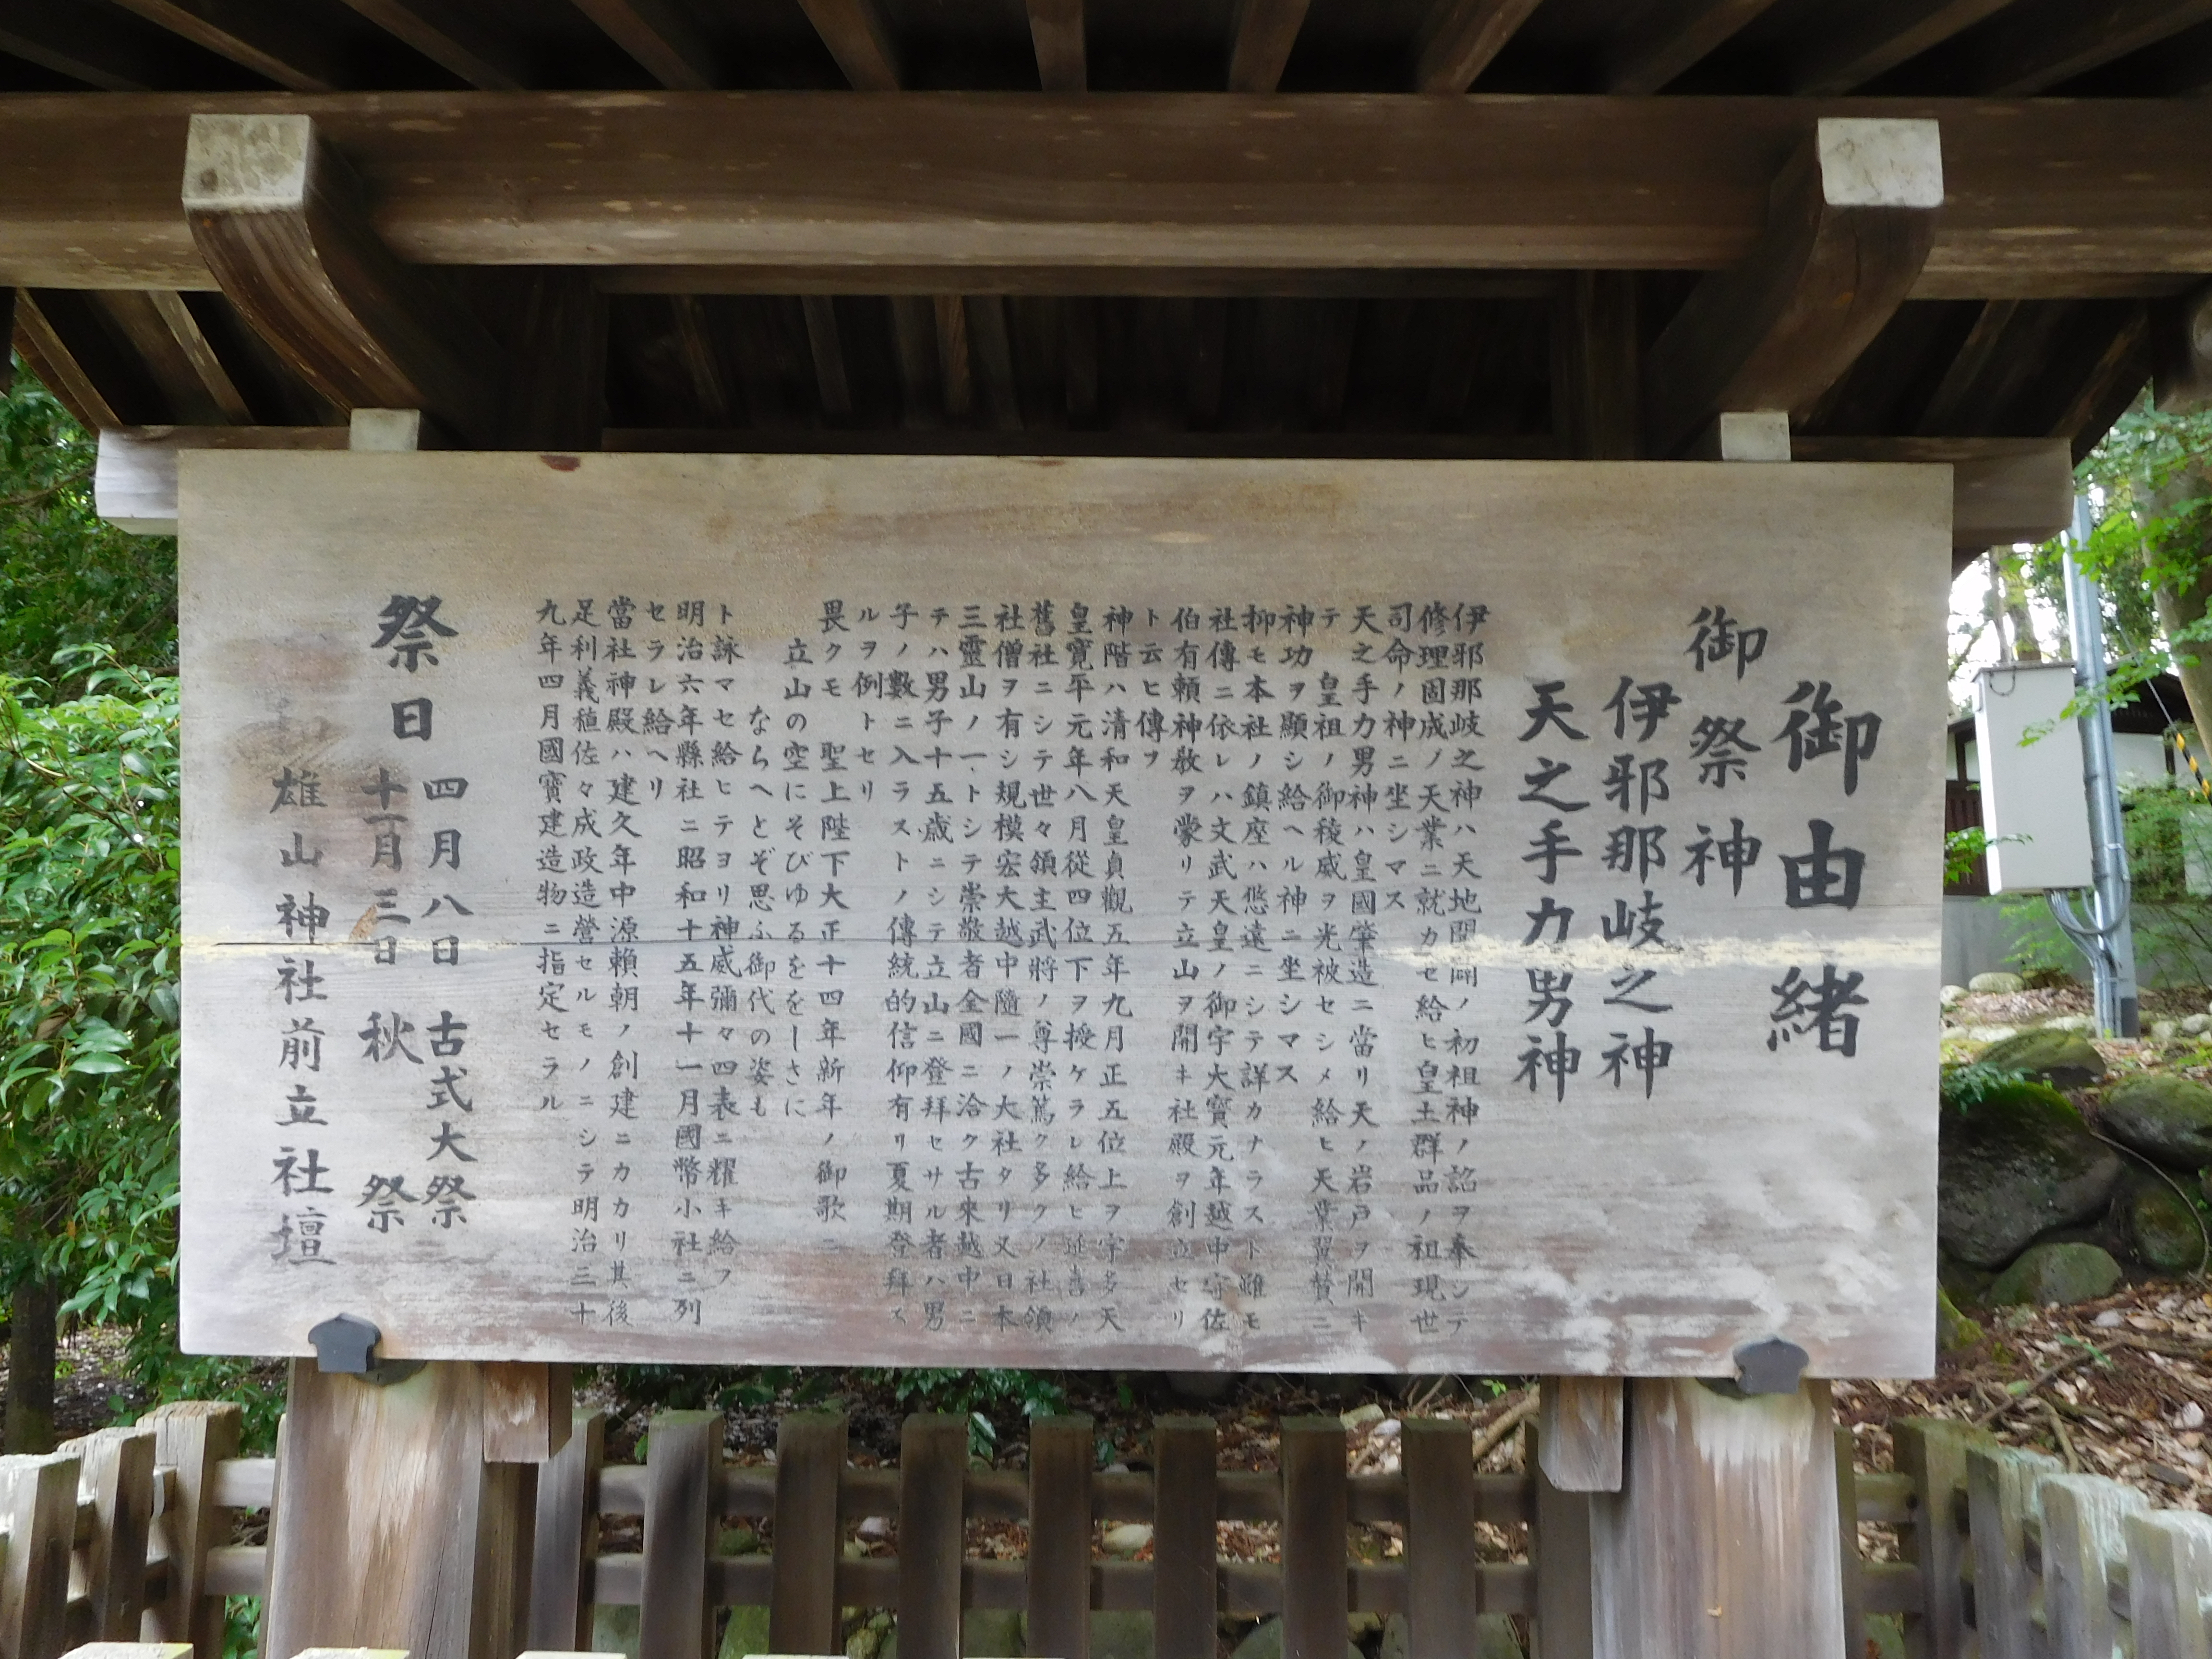 御由緒
御祭神
伊邪那岐之神
天之手力男神
伊邪那岐之神ハ天地開闢ノ初祖神ノ詔ヲ奉シテ
修理固成ノ天業ニ就カセ給ヒ皇土群品ノ祖現世
司命ノ神ニ坐シマス
天之手力男神ハ皇國肇造ニ當リ天ノ岩戸ヲ開キ
テ 皇祖ノ御稜威ヲ光被セシメ給ヒ天業翼賛ニ
神功ヲ顯シ給ヘル神ニ坐シマス
抑モ本社ノ鎮座ハ悠遠ニシテ詳カナラスト雖モ
社傳ニ依レハ文武天皇ノ御宇大寶元年越中守佐
伯有頼神敎ヲ蒙リテ立山ヲ開キ社殿ヲ創立セリ
ト云ヒ傳ヲ
神階ハ清和天皇貞觀五年九月正五位上ヲ宇多天
皇寛平元年八月從四位下ヲ授ケラレ給ヒ延喜ノ
舊社ニシテ世々領主武將ノ尊崇篤ク多クノ社領
社僧ヲ有シ規模宏大越中隨一ノ大社タリ又日本
三靈山ノ一トシテ崇敬者全國ニ洽ク古來越中ニ
テハ男子十五歳ニシテ立山ニ登拜セサル者ハ男
子ノ數ニ入ラストノ傳統的信仰有リ夏期登拜ス
ルヲ例トセリ
畏クモ 聖上陛下大正十四年新年ノ御歌ニ
立山の空にそびゆるををしさに
ならへとぞ思ふ御代の姿も
ト詠マセ給ヒテヨリ神威彌々四表ニ耀キ給フ
明治六年縣社ニ昭和十五年十一月國幣小社ニ列
セラレ給ヘリ
當社神殿ハ建久年中源賴朝ノ創建ニカカリ其後
足利義稙佐々成政造營セルモノニシテ明治三十
九年四月國寶建造物ニ指定セラル
祭日
四月八日 古式大祭
十一月三日 秋祭
雄山神社前立社壇